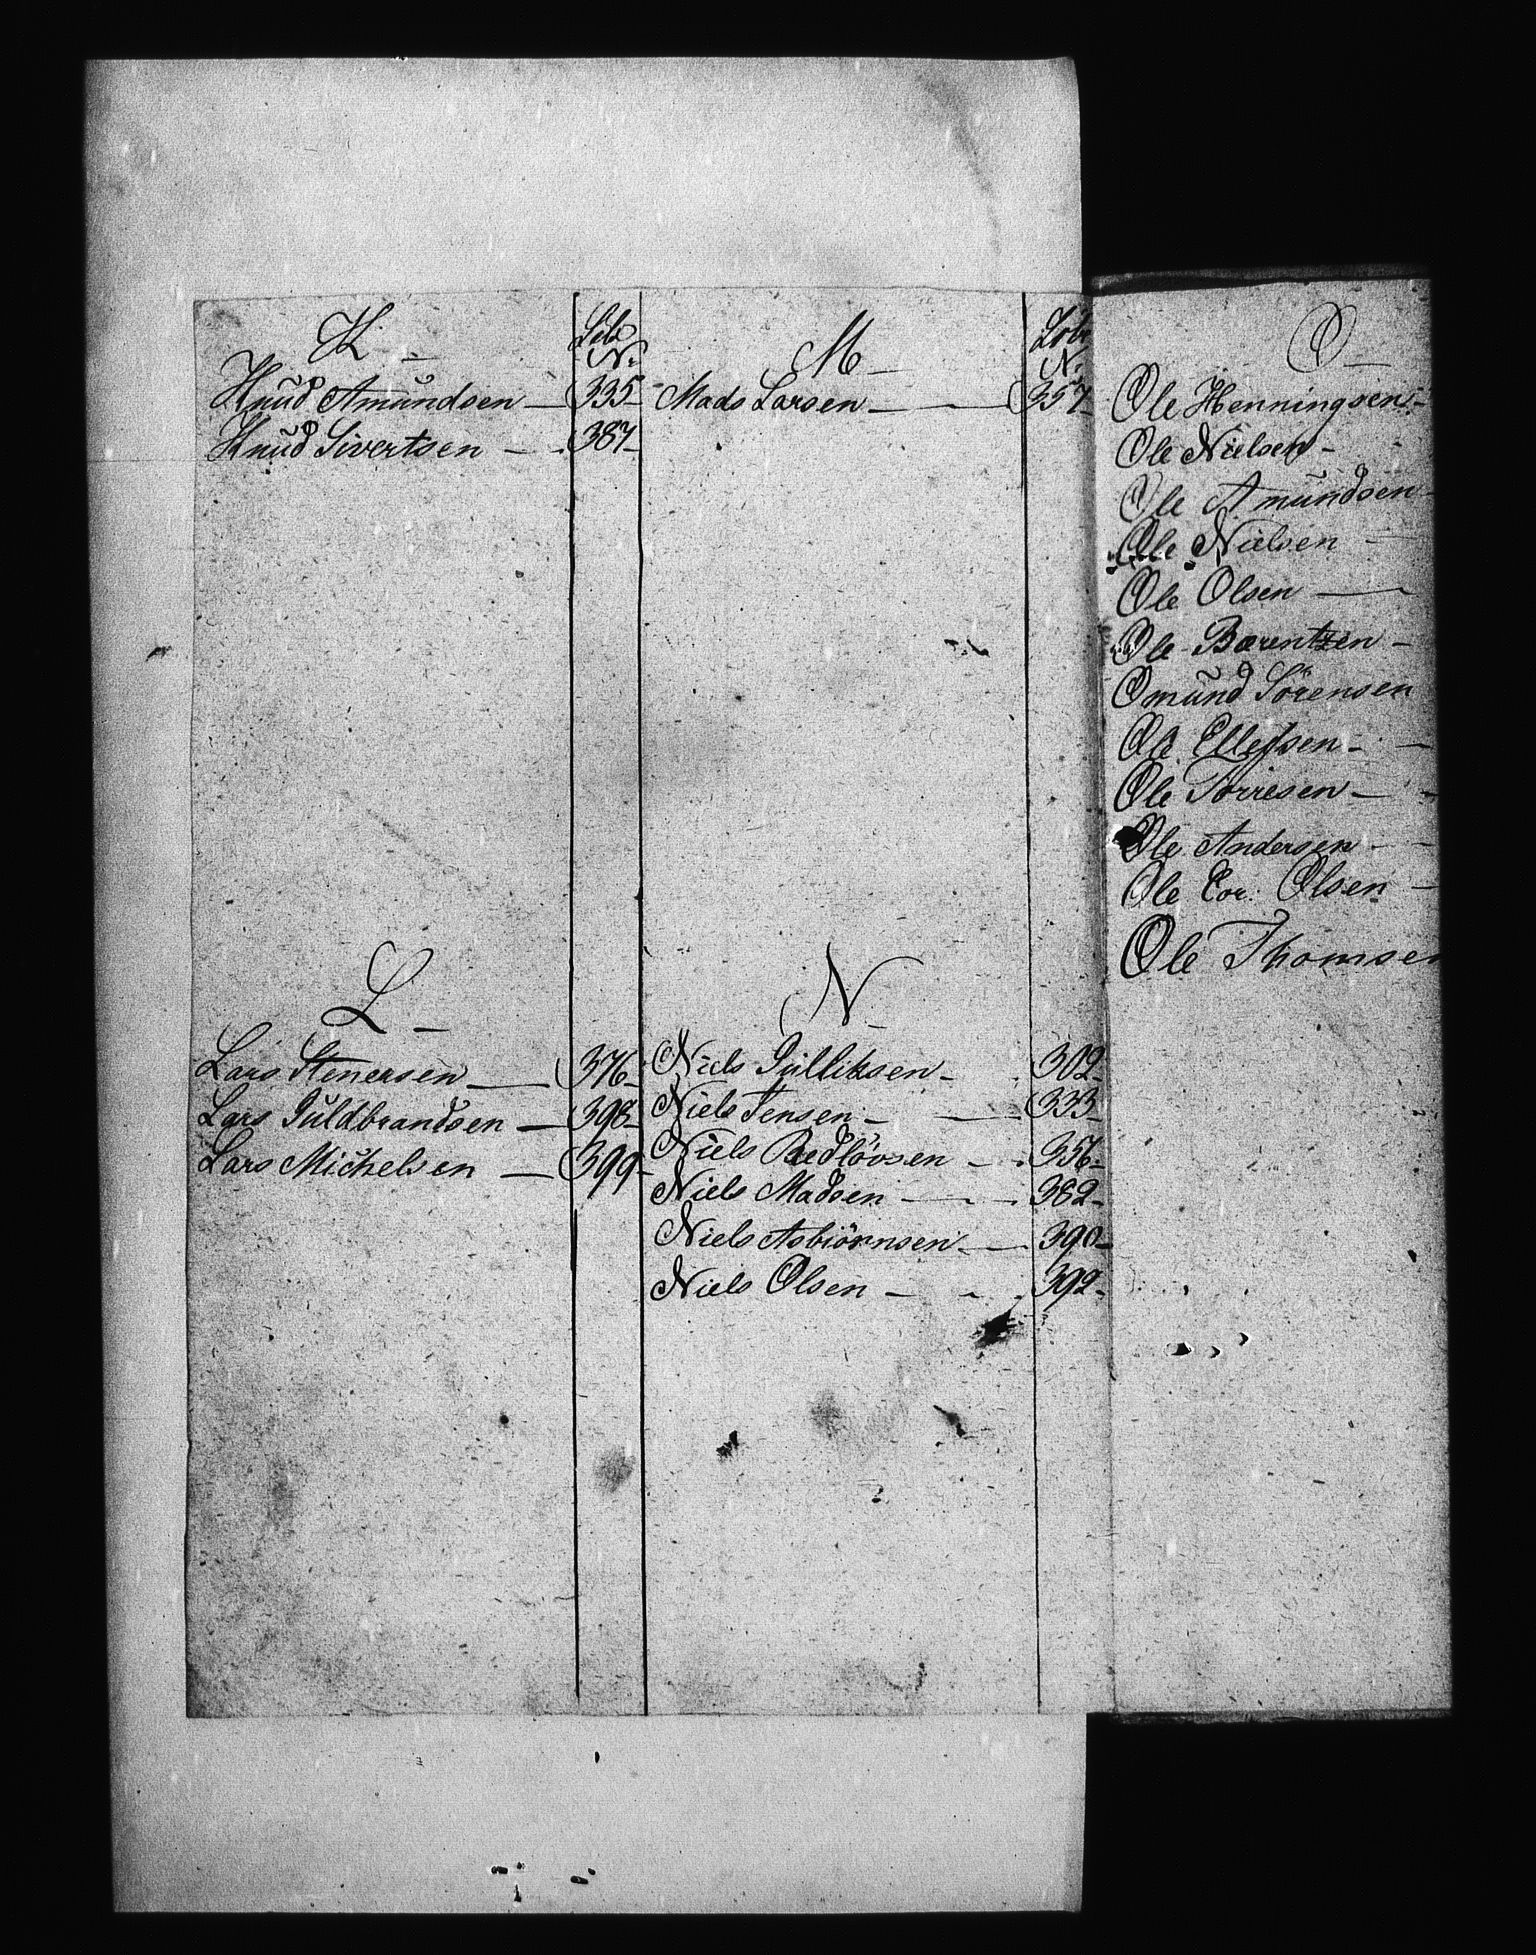 K
Løbe
No
Knud Amundsen 335
Knud Sivertsen 387
L
Lars Stenersen 376
Lars Guldbrandsen 398
Lars Michelsen 399
M
Løbe
No
Mads Larsen 357
N
Niels Gulliksen 302
Niels Jensen 333
NielsRedlövsen 356
Niels Madsen 382
Niels Asbiörnsen 390
Niels Olsen 392
O
Ole Henningsen
Ole Nielsen
Ole Amundsen
Ole Nielsen
Ole Olsen
Ole Barentzen
Omund Sörensen
Ole Ellefsen
Ole Torresen
Ole Andersen
Ole Cor: Olsen
Ole Thomsen